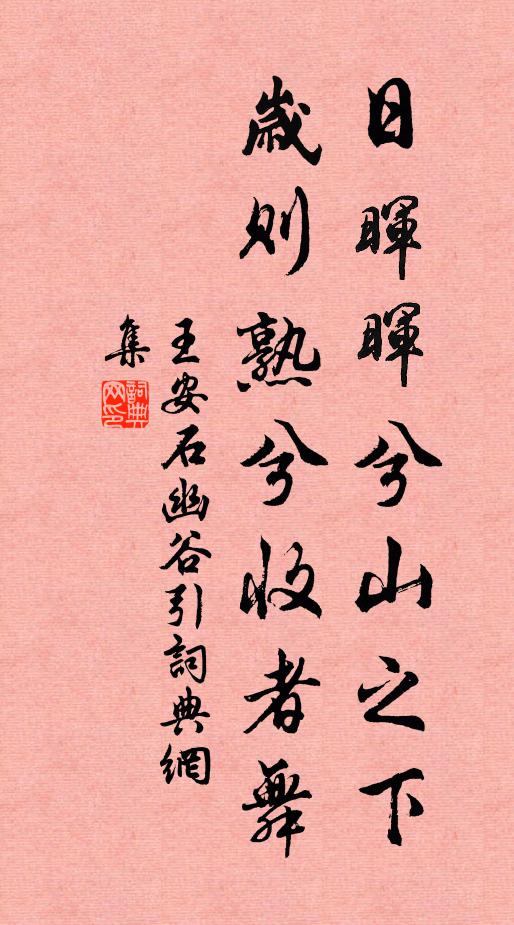 日暉暉兮山之下
歲則熟兮收者舞
王安石幽谷引詞典網
集
詞典網印